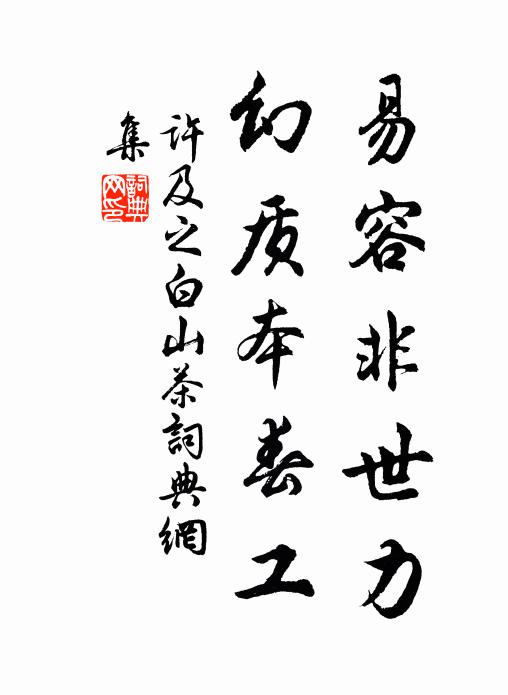 易容非世力
幻质本春工
許及之白山茶詞典網
集
詞典
网印